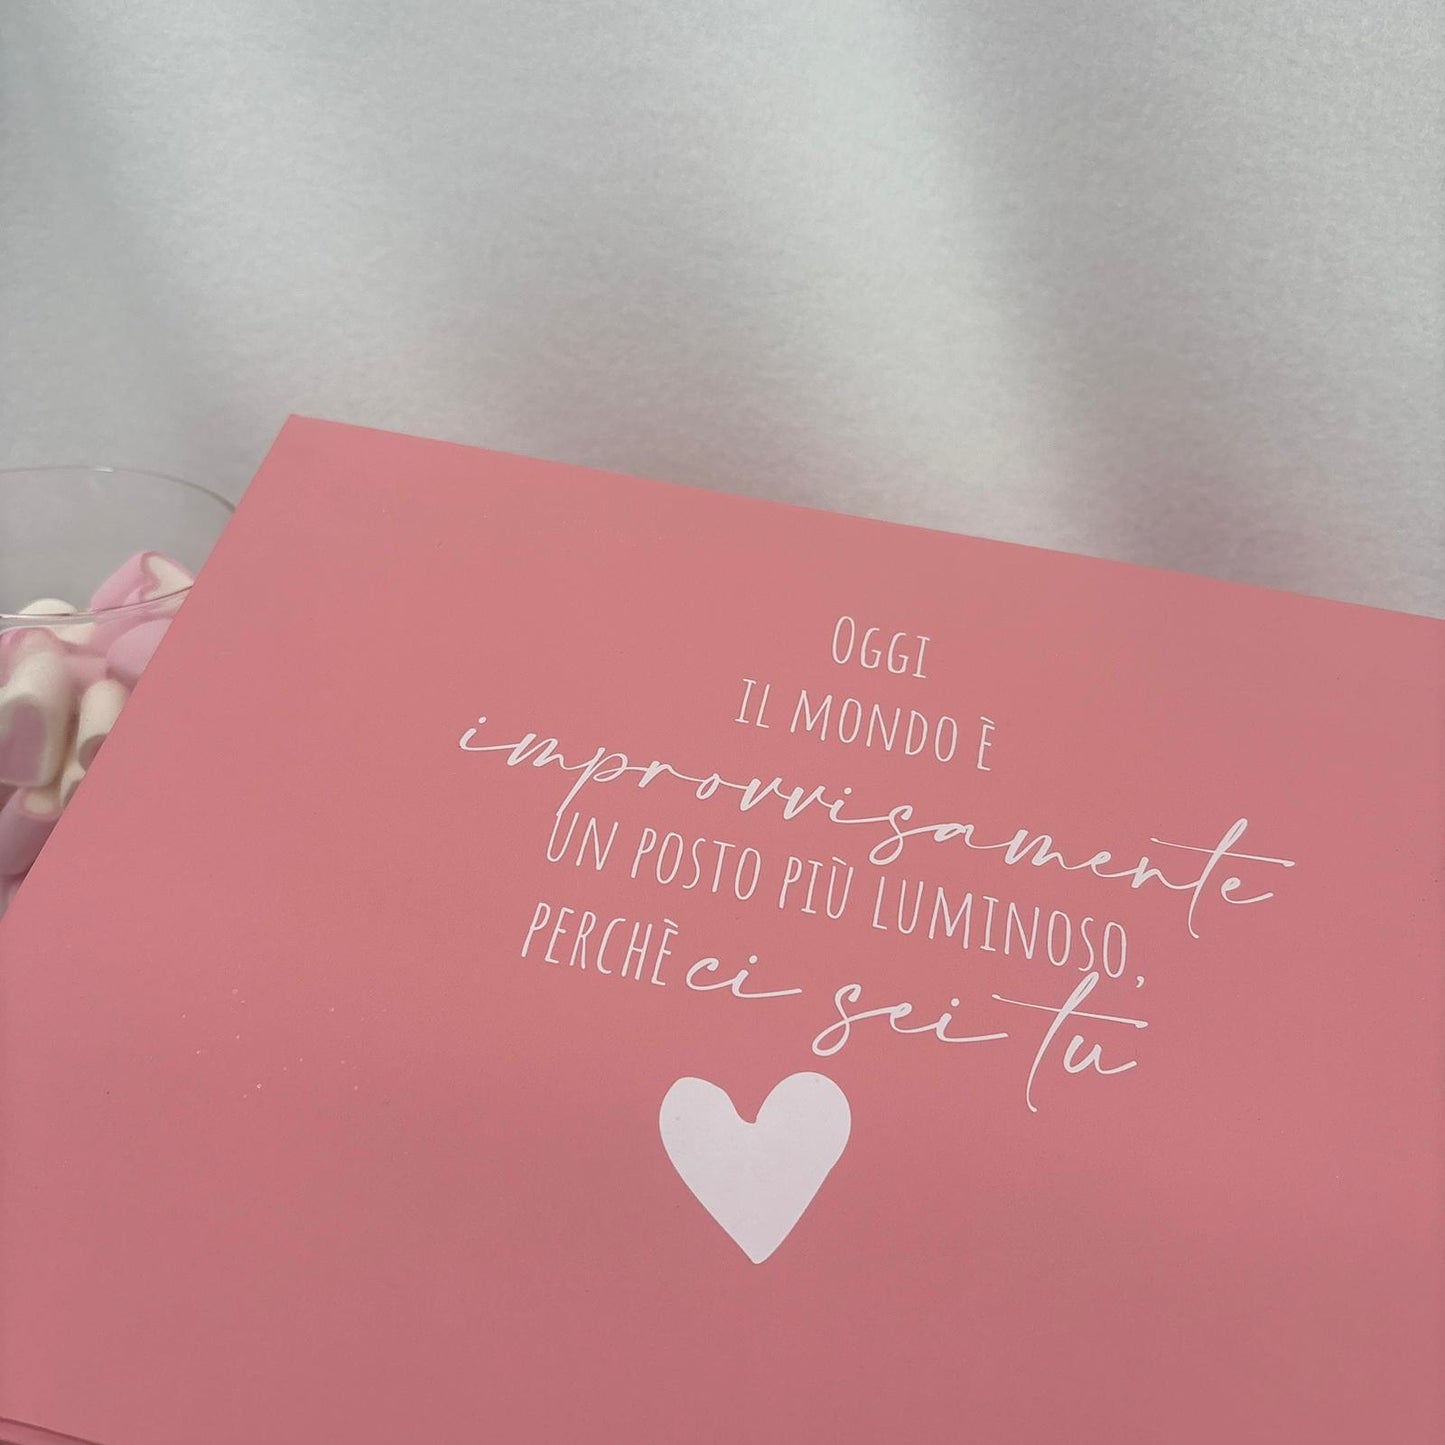 OGGI
IL MONDO È
improvvisamente
UN POSTO PIÙ LUMINOSO,
PERCHÈ ci sei tu